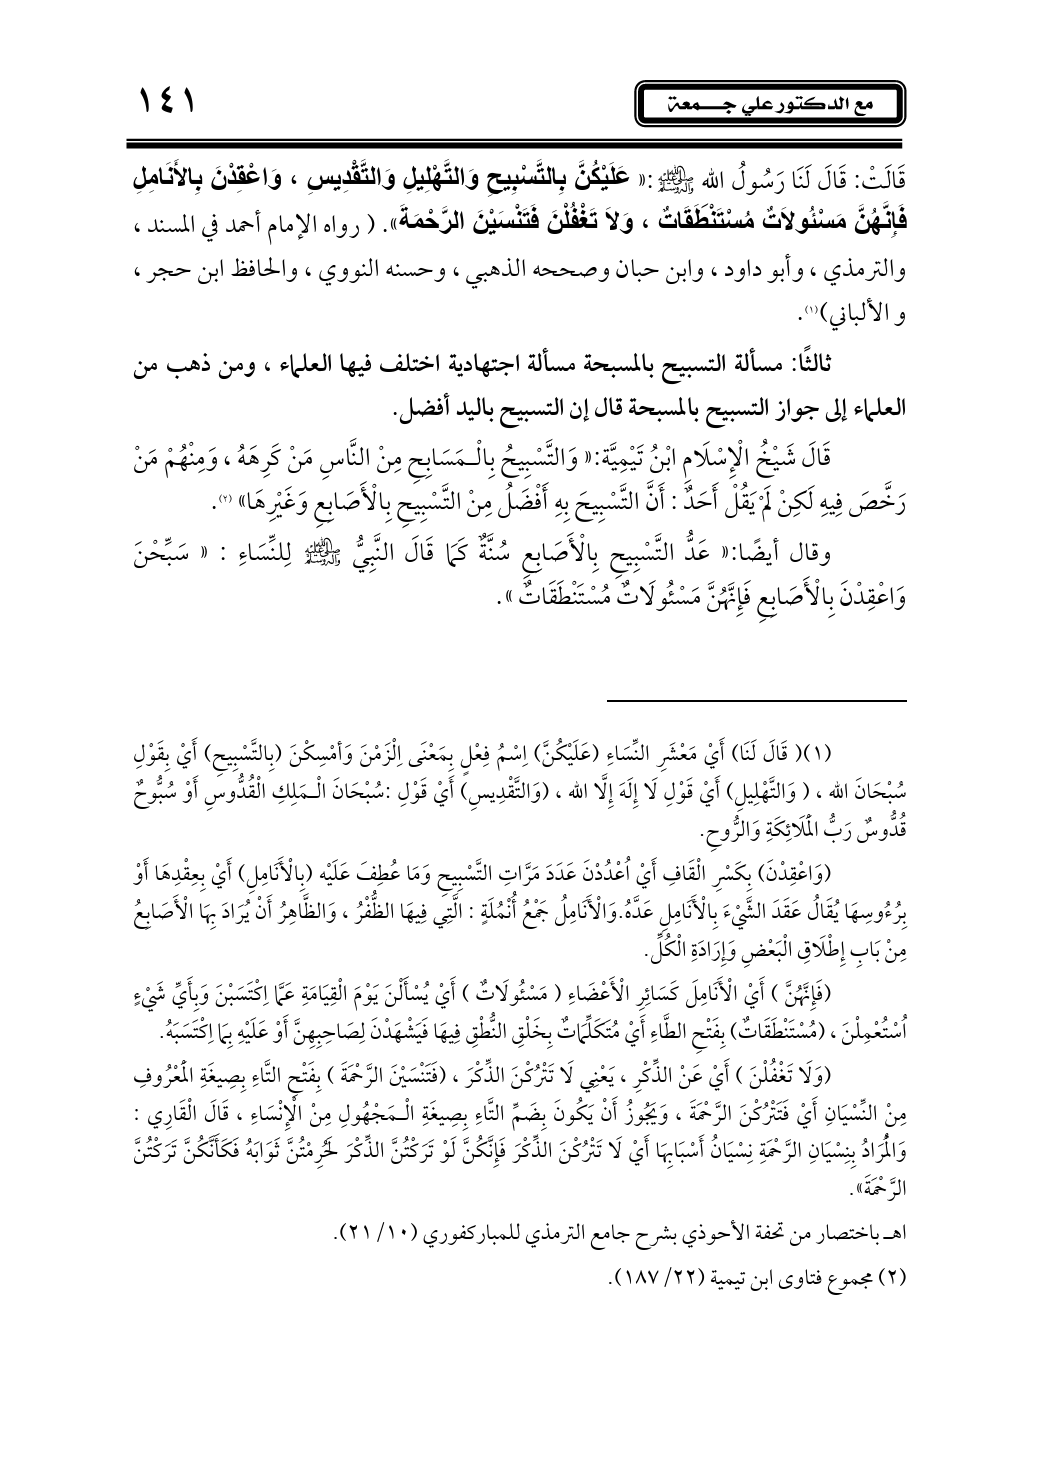 مع الدكتور علي جـــمعة
١٤١
قَالَتْ: قَالَ لَنَا رَسُولُ الله ﷺ:« عَلَيْكُنَّ بِالتَّسْبِيحِ وَالتَّهْلِيلِ وَالتَّقْدِيسِ ، وَاعْقِدْنَ بِالأَنَامِلِ
فَإِنَّهُنَّ مَسْئُولاَتٌ مُسْتَنْطَقَاتٌ ، وَلاَ تَغْفُلْنَ فَتَنْسَيْنَ الرَّحْمَةَ». ( رواه الإمام أحمد في المسند ،
والترمذي ، وأبو داود ، وابن حبان وصححه الذهبي ، وحسنه النووي ، والحافظ ابن حجر ،
و الألباني)(١).
ثالثًا: مسألة التسبيح بالمسبحة مسألة اجتهادية اختلف فيها العلماء ، ومن ذهب من
العلماء إلى جواز التسبيح بالمسبحة قال إن التسبيح باليد أفضل.
قَالَ شَيْخُ الْإِسْلَامِ ابْنُ تَيْمِيَّة:« وَالتَّسْبِيحُ بِالْـمَسَابِحِ مِنْ النَّاسِ مَنْ كَرِهَهُ ، وَمِنْهُمْ مَنْ
رَخَّصَ فِيهِ لَكِنْ لَمْ يَقُلْ أَحَدٌ : أَنَّ التَّسْبِيحَ بِهِ أَفْضَلُ مِنْ التَّسْبِيحِ بِالْأَصَابِعِ وَغَيْرِهَا» (٢).
وقال أيضًا:« عَدُّ التَّسْبِيحِ بِالْأَصَابِعِ سُنَّةٌ كَمَا قَالَ النَّبِيُّ ﷺ لِلنِّسَاءِ : « سَبِّحْنَ
وَاعْقِدْنَ بِالْأَصَابِعِ فَإِنَّهُنَّ مَسْئُولَاتٌ مُسْتَنْطَقَاتٌ ».
(١)( قَالَ لَنَا) أَيْ مَعْشَرِ النِّسَاءِ (عَلَيْكُنَّ) اِسْمُ فِعْلٍ بِمَعْنَى اِلْزَمْنَ وَأمْسِكْنَ (بِالتَّسْبِيحِ) أَيْ بِقَوْلِ
سُبْحَانَ الله ، ( وَالتَّهْلِيلِ) أَيْ قَوْلِ لَا إِلَهَ إِلَّا الله ، (وَالتَّقْدِيسِ) أَيْ قَوْلِ :سُبْحَانَ الْـمَلِكِ الْقُدُّوسِ أَوْ سُبُّوحٌ
قُدُّوسٌ رَبُّ الْمَلَائِكَةِ وَالرُّوحِ.
(وَاعْقِدْنَ) بِكَسْرِ الْقَافِ أَيْ اُعْدُدْنَ عَدَدَ مَرَّاتِ التَّسْبِيحِ وَمَا عُطِفَ عَلَيْه (بِالْأَنَامِلِ) أَيْ بِعِقْدِهَا أَوْ
بِرُءُوسِهَا يُقَالُ عَقَدَ الشَّيْءَ بِالْأَنَامِلِ عَدَّهُ.وَالْأَنَامِلُ جَمْعُ أُنْمُلَةٍ : الَّتِي فِيهَا الظُّفْرُ ، وَالظَّاهِرُ أَنْ يُرَادَ بِهَا الْأَصَابِعُ
مِنْ بَابِ إِطْلَاقِ الْبَعْضِ وَإِرَادَةِ الْكُلِّ.
(فَإِنَّهُنَّ ) أَيْ الْأَنَامِلَ كَسَائِرِ الْأَعْضَاءِ ( مَسْئُولَاتٌ ) أَيْ يُسْأَلْنَ يَوْمَ الْقِيَامَةِ عَمَّا اِكْتَسَبْنَ وَبِأَيِّ شَيْءٍ
اُسْتُعْمِلْنَ ، (مُسْتَنْطَقَاتٌ) بِفَتْحِ الطَّاءِ أَيْ مُتَكَلِّمَاتٌ بِخَلْقِ النُّطْقِ فِيهَا فَيَشْهَدْنَ لِصَاحِبِهِنَّ أَوْ عَلَيْهِ بِمَا اِكْتَسَبَهُ.
(وَلَا تَغْفُلْنَ ) أَيْ عَنْ الذِّكْرِ ، يَعْنِي لَا تَتْرُكْنَ الذِّكْرَ ، (فَتَنْسَيْنَ الرَّحْمَةَ ) بِفَتْحِ التَّاءِ بِصِيغَةِ الْمَعْرُوفِ
مِنْ النِّسْيَانِ أَيْ فَتَتْرُكْنَ الرَّحْمَةَ ، وَيَجُوزُ أَنْ يَكُونَ بِضَمِّ التَّاءِ بِصِيغَةِ الْـمَجْهُولِ مِنْ الْإِنْسَاءِ ، قَالَ الْقَارِي :
وَالْمُرَادُ بِنِسْيَانِ الرَّحْمَةِ نِسْيَانُ أَسْبَابِهَا أَيْ لَا تَتْرُكْنَ الذِّكْرَ فَإِنَّكُنَّ لَوْ تَرَكْتُنَّ الذِّكْرَ لَحُرِمْتُنَّ ثَوَابَهُ فَكَأَنَّكُنَّ تَرَكْتُنَّ
الرَّحْمَةَ».
اهـ باختصار من تحفة الأحوذي بشرح جامع الترمذي للمباركفوري (١٠/ ٢١).
(٢) مجموع فتاوى ابن تيمية (٢٢/ ١٨٧).